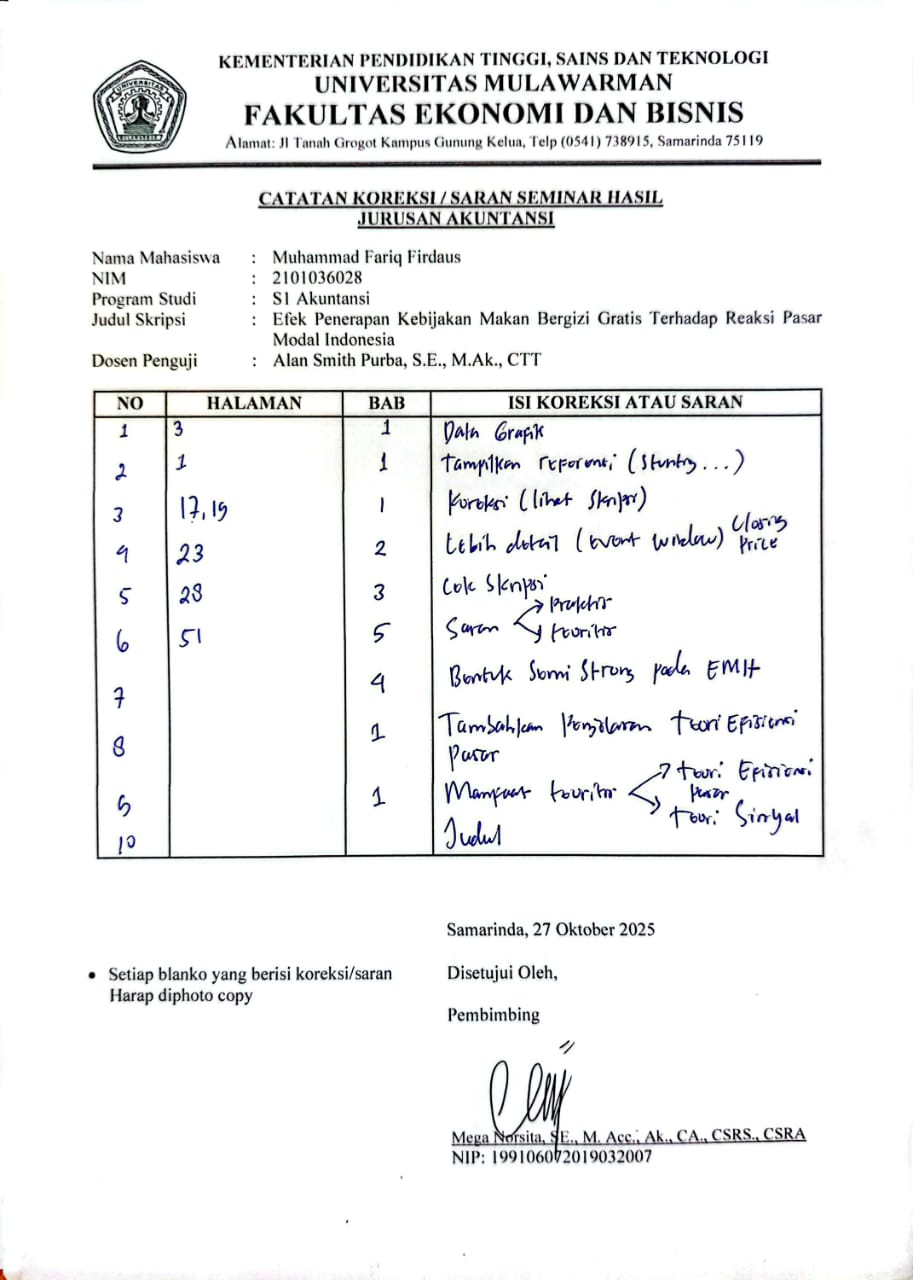 KEMENTERIAN PENDIDIKAN TINGGI, SAINS DAN TEKNOLOGI
UNIVERSITAS MULAWARMAN
FAKULTAS EKONOMI DAN BISNIS
Alamat: Jl Tanah Grogot Kampus Gunung Kelua, Telp (0541) 738915, Samarinda 75119
CATATAN KOREKSI / SARAN SEMINAR HASIL
JURUSAN AKUNTANSI
Nama Mahasiswa : Muhammad Fariq Firdaus
NIM : 2101036028
Program Studi : S1 Akuntansi
Judul Skripsi : Efek Penerapan Kebijakan Makan Bergizi Gratis Terhadap Reaksi Pasar
Modal Indonesia
Dosen Penguji : Alan Smith Purba, S.E., M.Ak., CTT
NO HALAMAN BAB ISI KOREKSI ATAU SARAN
1 3 1 Data Grafik
2 1 1 Tampilkan referensi (Stunting...)
3 17, 19 1 Koreksi (lihat Skripsi)
4 23 2 Lebih detail (event window) Closing
Price
5 28 3 Cek Skripsi
6 51 5 Saran praktis
teoritis
7 4 Bentuk Semi Strong pada EMH
8 1 Tambahkan Penjelasan teori Efisiensi
Pasar
9 1 Manfaat teoritis teori Efisiensi
pasar
teori Sinyal
10 Judul
Samarinda, 27 Oktober 2025
• Setiap blanko yang berisi koreksi/saran
Harap diphoto copy
Disetujui Oleh,
Pembimbing
Mega Norsita, SE., M. Acc., Ak., CA., CSRS., CSRA
NIP: 199106072019032007